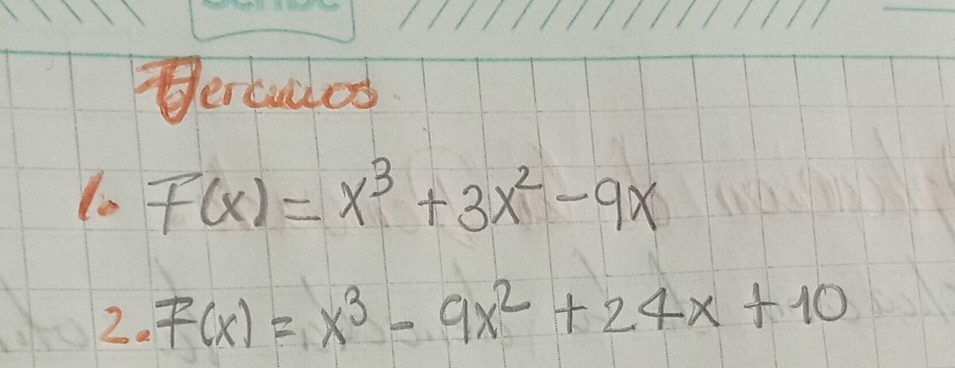 Ejercicios
1. F(x) = x³ + 3x² - 9x
2. F(x) = x³ - 9x² + 24x + 10